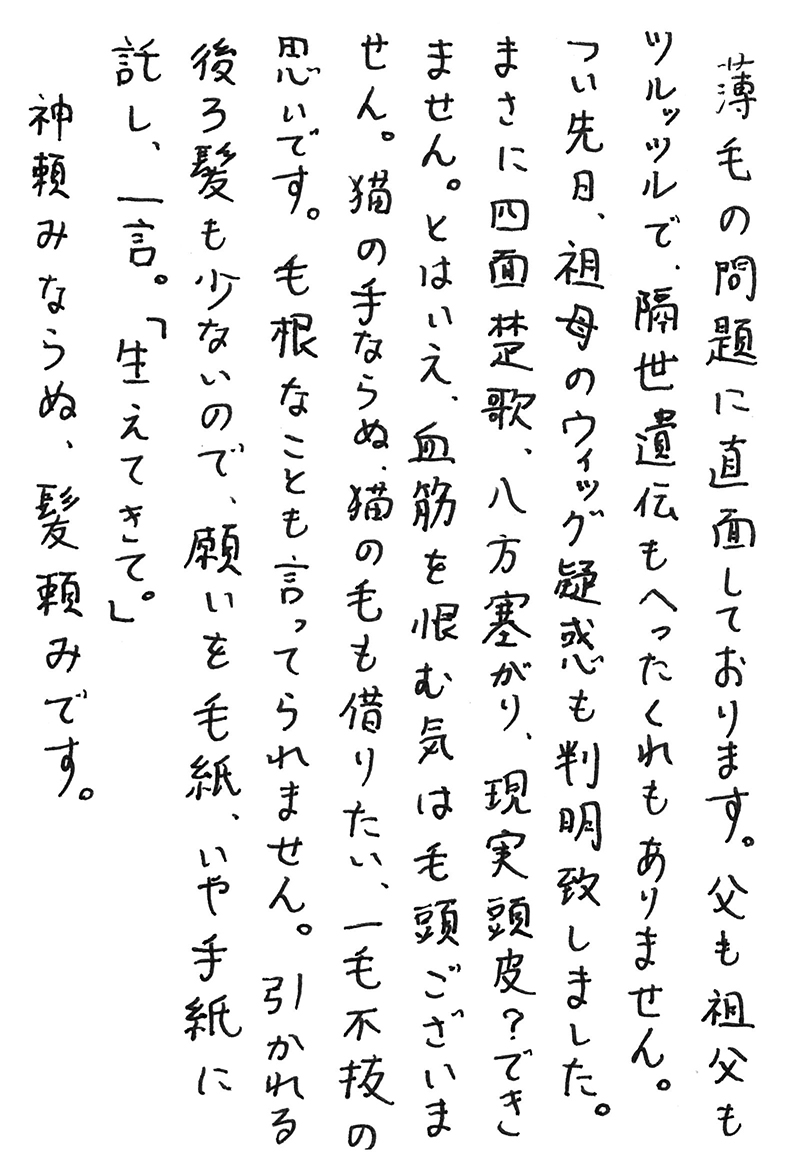 薄毛の問題に直面しております。父も祖父も
ツルッツルで、隔世遺伝もへったくれもありません。
つい先日、祖母のウィッグ疑惑も判明致しました。
まさに四面楚歌、八方塞がり、現実頭皮?でき
ません。とはいえ、血筋を恨む気は毛頭ございま
せん。猫の手ならぬ、猫の毛も借りたい、一毛不抜の
思いです。毛根なことも言ってられません。引かれる
後ろ髪も少ないので、願いを毛紙、いや手紙に
託し、一言。「生えてきて。」
神頼みならぬ、髪頼みです。